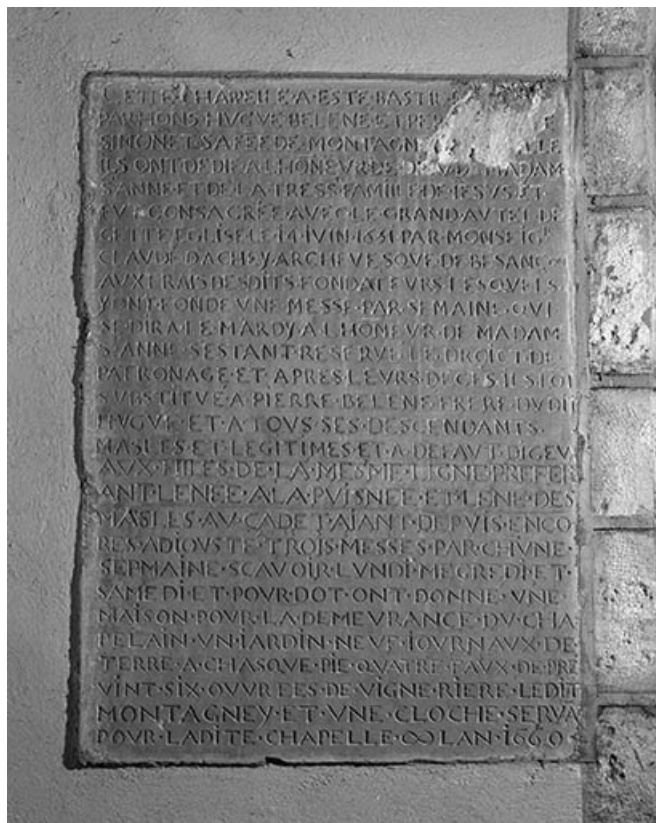 CETTE·CHAPELLE·A·ESTE·BASTIE
PAR·HONS·HVGVE·BELENE·ET·PER
SIMONE·T·SA·FEE·DE·MONTAGN
ILS·ONT·DEDIE·A·LHONEVR·DE·MADAM
S·ANNE·ET·DE·LA·TRESS·FAMILLE·DE·IESVS·ET
FVT·CONSACRÉE·AVEC·LE·GRAND·AVTEL·DE
CETTE·EGLISE·LE·14·IVIN·1651·PAR·MONSEIGR
CLAVDE·DACHEY·ARCHEVESQVE·DE·BESANÇON
AVX·FRAIS·DESDITS·FONDATEVRS·LESQVELS
Y·ONT·FONDE·VNE·MESSE·PAR·SEMAINE·QVI
SE·DIRA·LE·MARDY·A·LHONEVR·DE·MADAM
S·ANNE·SESTANT·RESERVE·LE·DROICT·DE·
PATRONAGE·ET·APRES·LEVRS·DECES·ILS·LONT
SVBSTITVE·A·PIERRE·BELENE·FRERE·DVDIT
HVGVE·ET·A·TOVS·SES·DESCENDANTS·
MASLES·ET·LEGITIMES·ET·A·DEFAVT·DIGEV
AVX·FILLES·DE·LA·MESME·LIGNE·PREFER
ANT·LENEE·A·LA·PVISNEE·ET·LENE·DES
MASLES·AV·CADET·AIANT·DEPVIS·ENCO
RES·ADIOVSTE·TROIS·MESSES·PAR·CHVNE·
SEPMAINE·SCAVOIR·LVNDI·MECREDI·ET·
SAMEDI·ET·POVR·DOT·ONT·DONNE·VNE
MAISON·POVR·LA·DEMEVRANCE·DV·CHA
PELAIN·VN·IARDIN·NEVF·IOVRNAVX·DE
TERRE·A·CHASQVE·PIE·QVATRE·FAVX·DE·PRE
VINT·SIX·OVVREES·DE·VIGNE·RIERE·LEDIT
MONTAGNEY·ET·VNE·CLOCHE·SERVA
POVR·LADITE·CHAPELLE LAN·1660